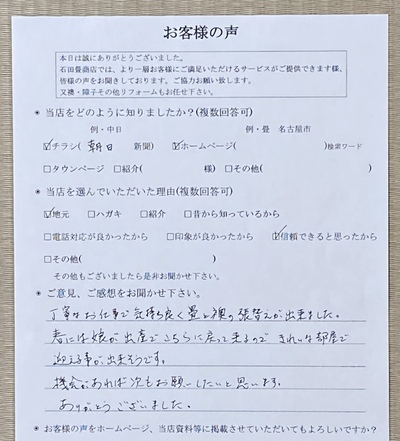 お客様の声
本日は誠にありがとうございました。
石田畳商店では、より一層お客様にご満足いただけるサービスがご提供できます様、
皆様の声をお聞きしております。ご協力お願い致します。
又襖・障子その他リフォームもお任せ下さい。
* 当店をどのように知りましたか?(複数回答可)
例・中日 例・畳 名古屋市
☑チラシ( 朝日 新聞) ☑ホームページ( )検索ワード
□タウンページ □紹介( 様) □その他( )
* 当店を選んでいただいた理由(複数回答可)
☑地元 □ハガキ □紹介 □昔から知っているから
□電話対応が良かったから □印象が良かったから ☑信頼できると思ったから
□その他( )
その他もございましたら是非お聞かせ下さい。
* ご意見、ご感想をお聞かせ下さい。
丁寧なお仕事で気持ち良く畳と襖の張替えが出来ました。
春には娘が出産でこちらに戻って来るので きれいな部屋で
迎える事が出来そうです。
機会があれば次もお願いしたいと思います。
ありがとうございました。
* お客様の声をホームページ、当店資料等に掲載させていただいてもよろしいですか?